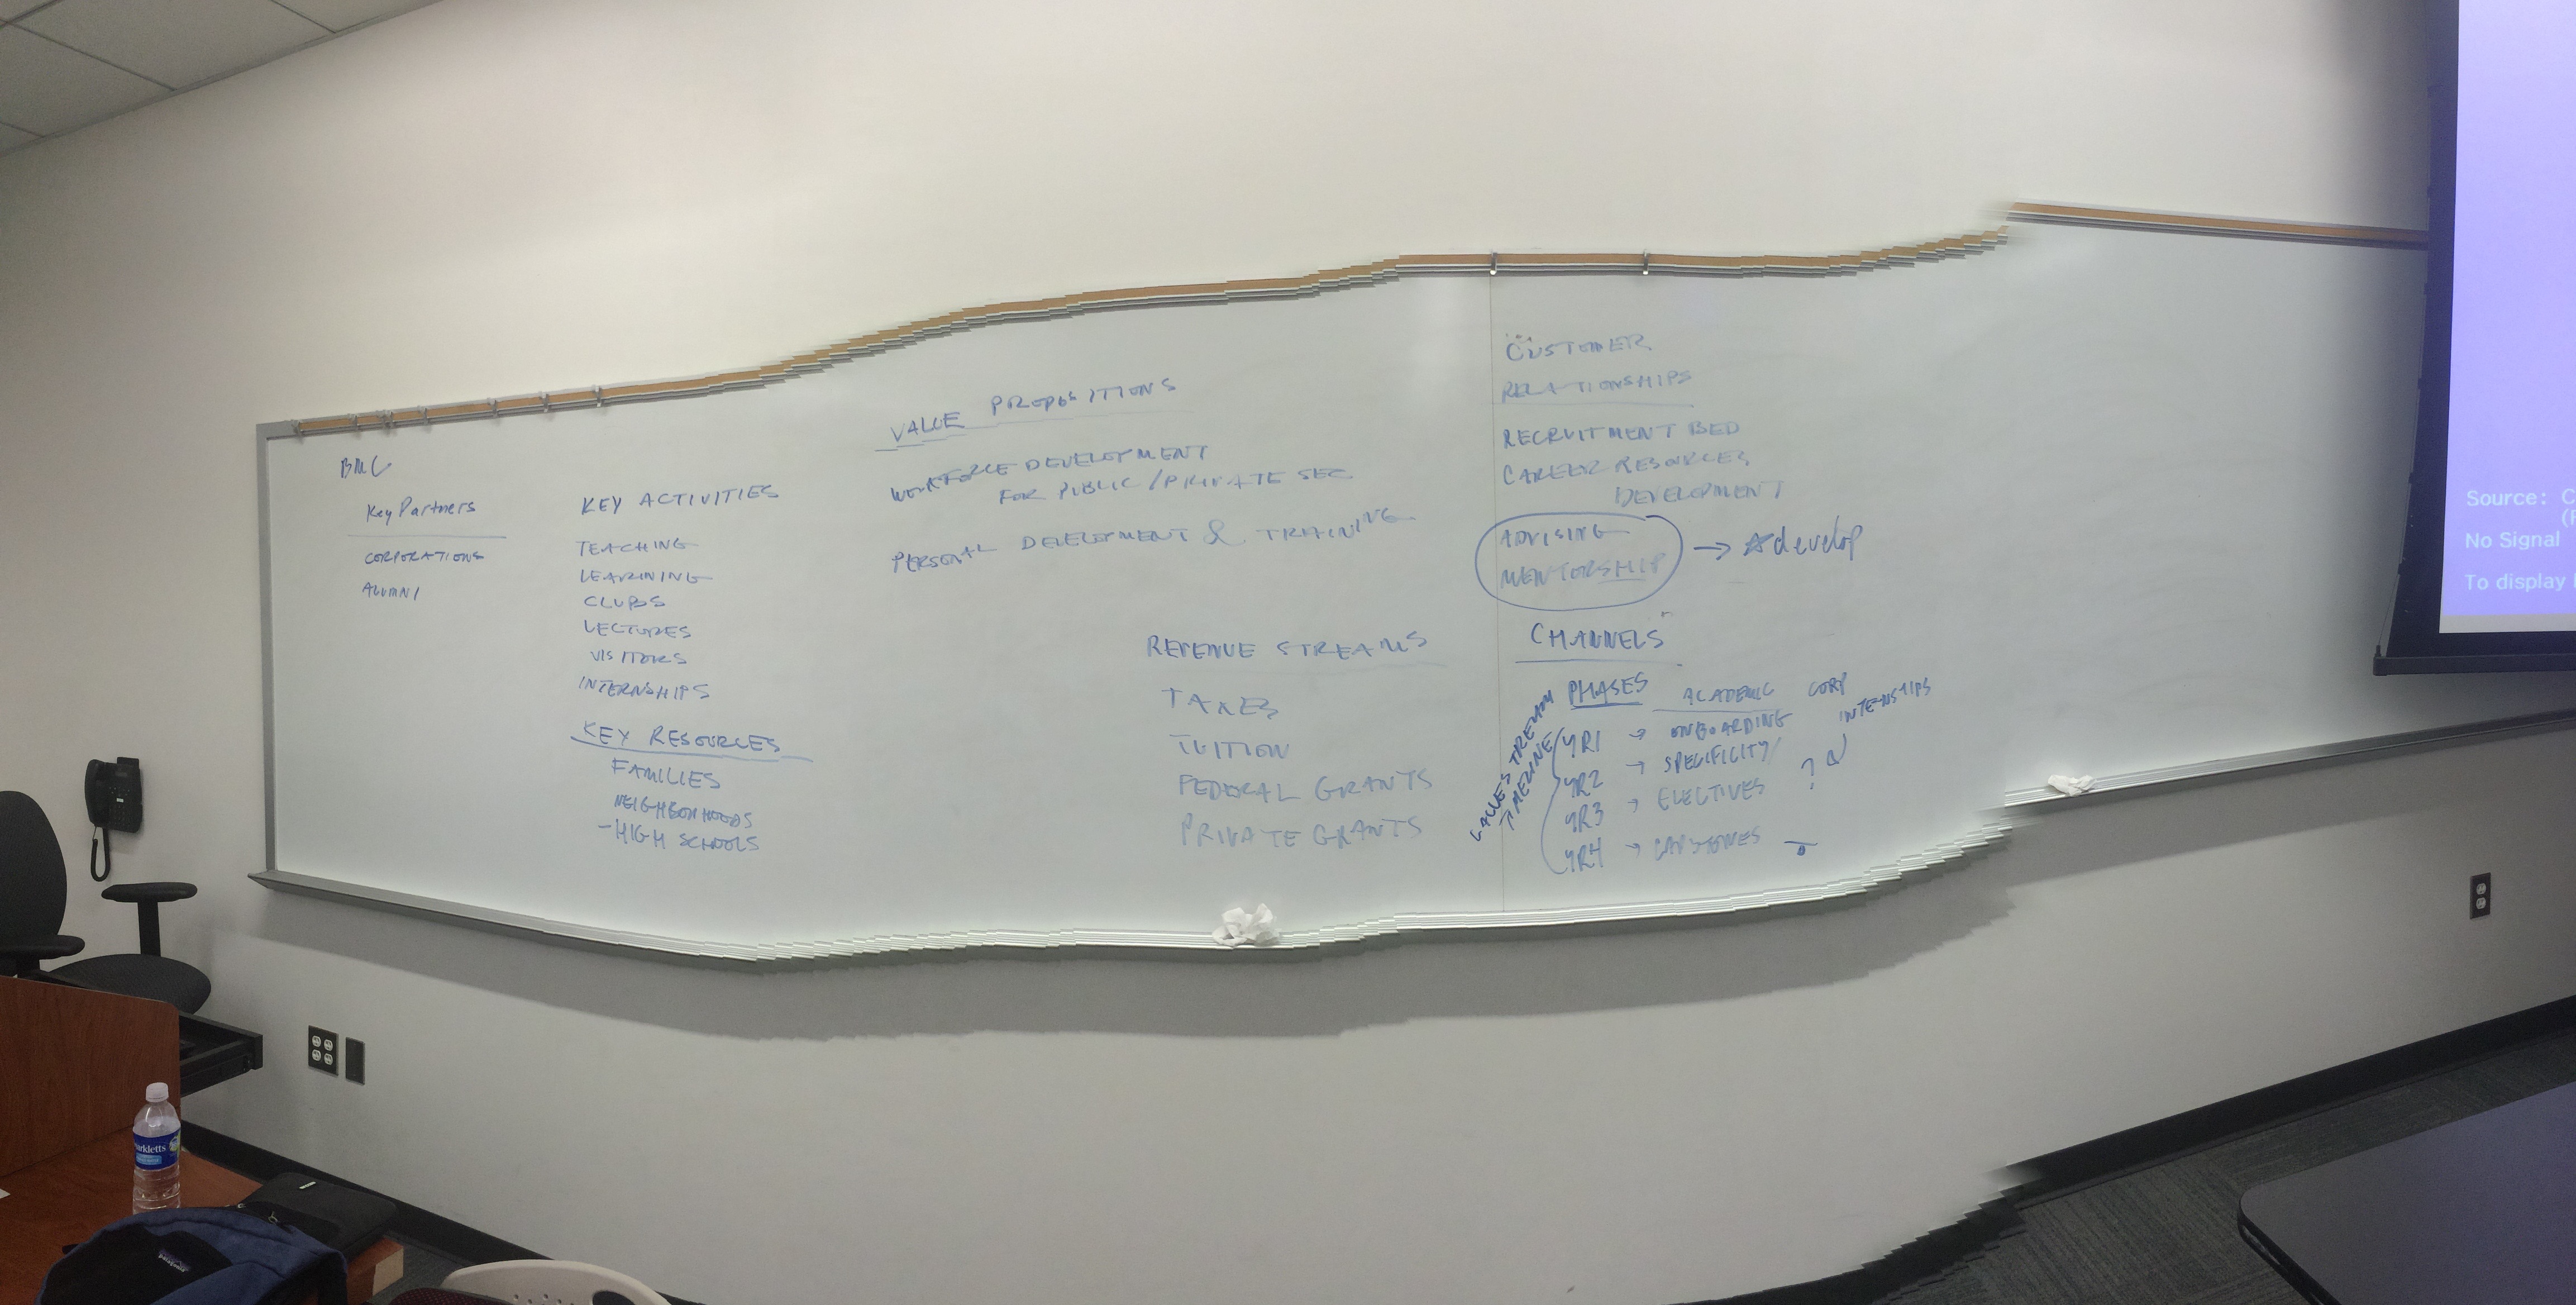 BMC
Key Partners
CORPORATIONS
ALUMNI
KEY ACTIVITIES
TEACHING
LEARNING
CLUBS
LECTURES
VISITORS
INTERNSHIPS
KEY RESOURCES
FAMILIES
NEIGHBORHOODS
-HIGH SCHOOLS
VALUE PROPOSITIONS
WORKFORCE DEVELOPMENT
FOR PUBLIC/PRIVATE SEC
PERSONAL DEVELOPMENT & TRAINING
REVENUE STREAMS
TAXES
TUITION
FEDERAL GRANTS
PRIVATE GRANTS
CUSTOMER
RELATIONSHIPS
RECRUITMENT BED
CAREER RESOURCES
DEVELOPMENT
ADVISING
MENTORSHIP → ☆develop
CHANNELS
STREAM
TIMELINE
PHASES ACADEMIC CORP
INTERNSHIPS
YR1 → ONBOARDING
YR2 → SPECIFICITY/
YR3 → ELECTIVES ?
YR4 → CAPSTONES
Source: C
No Signal
To display
patagonia